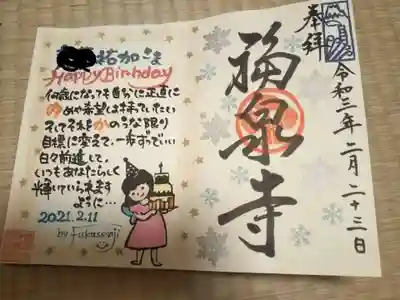 祐加さま
HappyBirthday
何歳になっても自分に正直に
ゆめや希望は持っていたい
そしてそれをかのうな限り
目標に変えて、一歩ずつでいい
日々前進して、
いつもあなたらしく
輝いていられます
ように…
2021.2.11
by Fukusenji
奉拝
福泉寺
令和三年二月二十三日